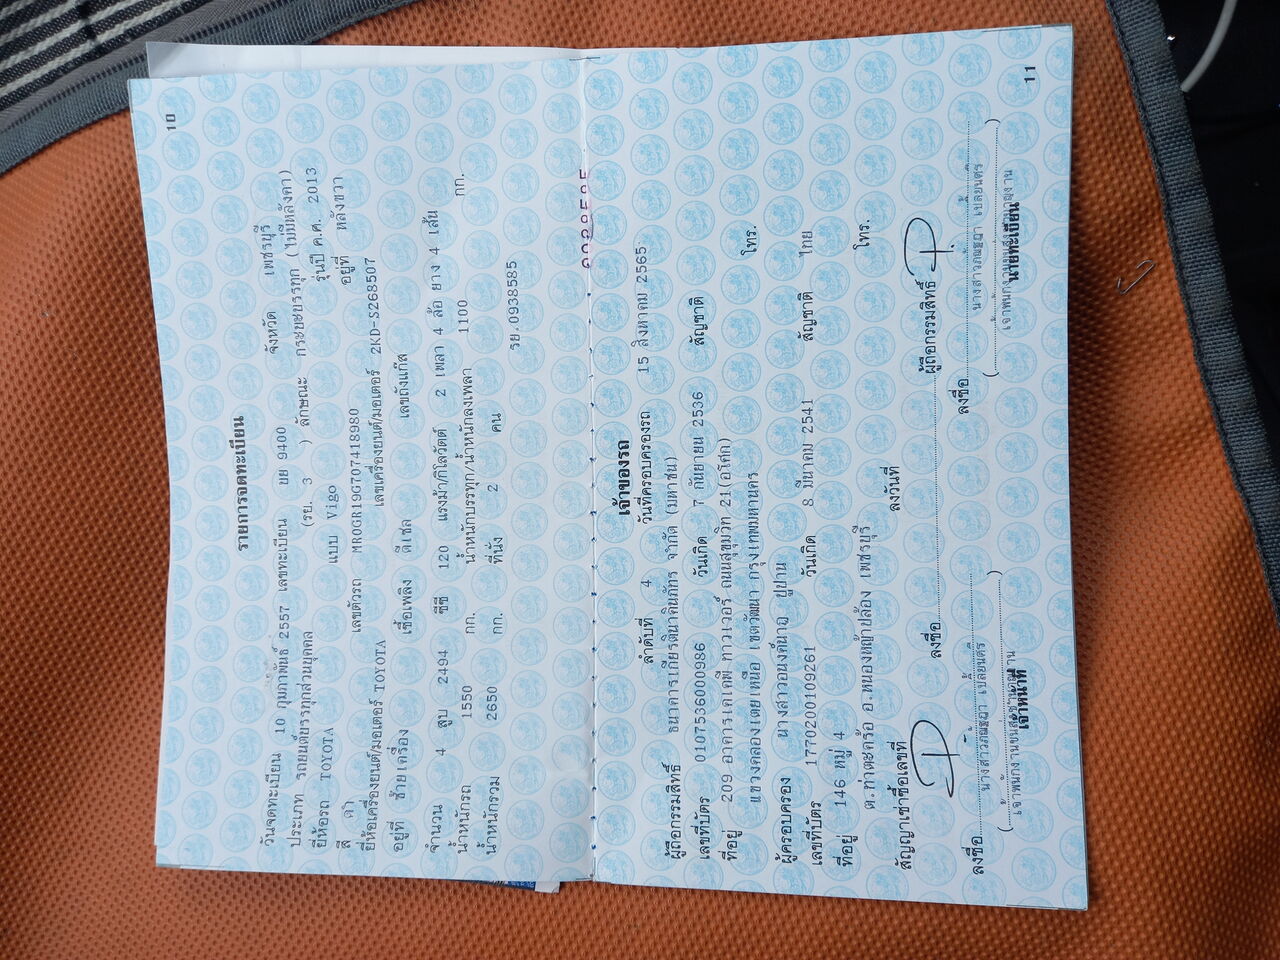 10
รายการจดทะเบียน
วันจดทะเบียน 10 กุมภาพันธ์ 2557 เลขทะเบียน บย 9400 จังหวัด เพชรบุรี
ประเภท รถยนต์บรรทุกส่วนบุคคล (รย. 3 ) ลักษณะ กระบะบรรทุก (ไม่มีหลังคา)
ยี่ห้อรถ TOYOTA แบบ Vigo รุ่นปี ค.ศ. 2013
สี ดำ เลขตัวรถ MR0GR19G707418980 อยู่ที่ หลังขวา
ยี่ห้อเครื่องยนต์/มอเตอร์ TOYOTA เลขเครื่องยนต์/มอเตอร์ 2KD-S268507
อยู่ที่ ซ้ายเครื่อง เชื้อเพลิง ดีเซล เลขถังแก๊ส
จำนวน 4 สูบ 2494 ซีซี 120 แรงม้า/กิโลวัตต์ 2 เพลา 4 ล้อ ยาง 4 เส้น
น้ำหนักรถ 1550 กก. น้ำหนักบรรทุก/น้ำหนักลงเพลา 1100 กก.
น้ำหนักรวม 2650 กก. ที่นั่ง 2 คน
รย.0938585
เจ้าของรถ
ลำดับที่ 4 วันที่ครอบครองรถ 15 สิงหาคม 2565
ผู้ถือกรรมสิทธิ์ ธนาคารเกียรตินาคินภัทร จำกัด (มหาชน)
เลขที่บัตร 0107536000986 วันเกิด 7 กันยายน 2536 สัญชาติ
ที่อยู่ 209 อาคารเคเคพี ทาวเวอร์ ถนนสุขุมวิท 21(อโศก)
แขวงคลองเตยเหนือ เขตวัฒนา กรุงเทพมหานคร โทร.
ผู้ครอบครอง นางสาวอนงค์นาฏ ปูปาน
เลขที่บัตร 1770200109261 วันเกิด 8 มีนาคม 2541 สัญชาติ ไทย
ที่อยู่ 146 หมู่ 4
ต.ท่าตะคร้อ อ.หนองหญ้าปล้อง เพชรบุรี โทร.
สัญญาเช่าซื้อเลขที่ ลงวันที่
ลงชื่อ ผู้ถือกรรมสิทธิ์
ลงชื่อ ลงชื่อ
เจ้าหน้าที่ นายทะเบียน
11